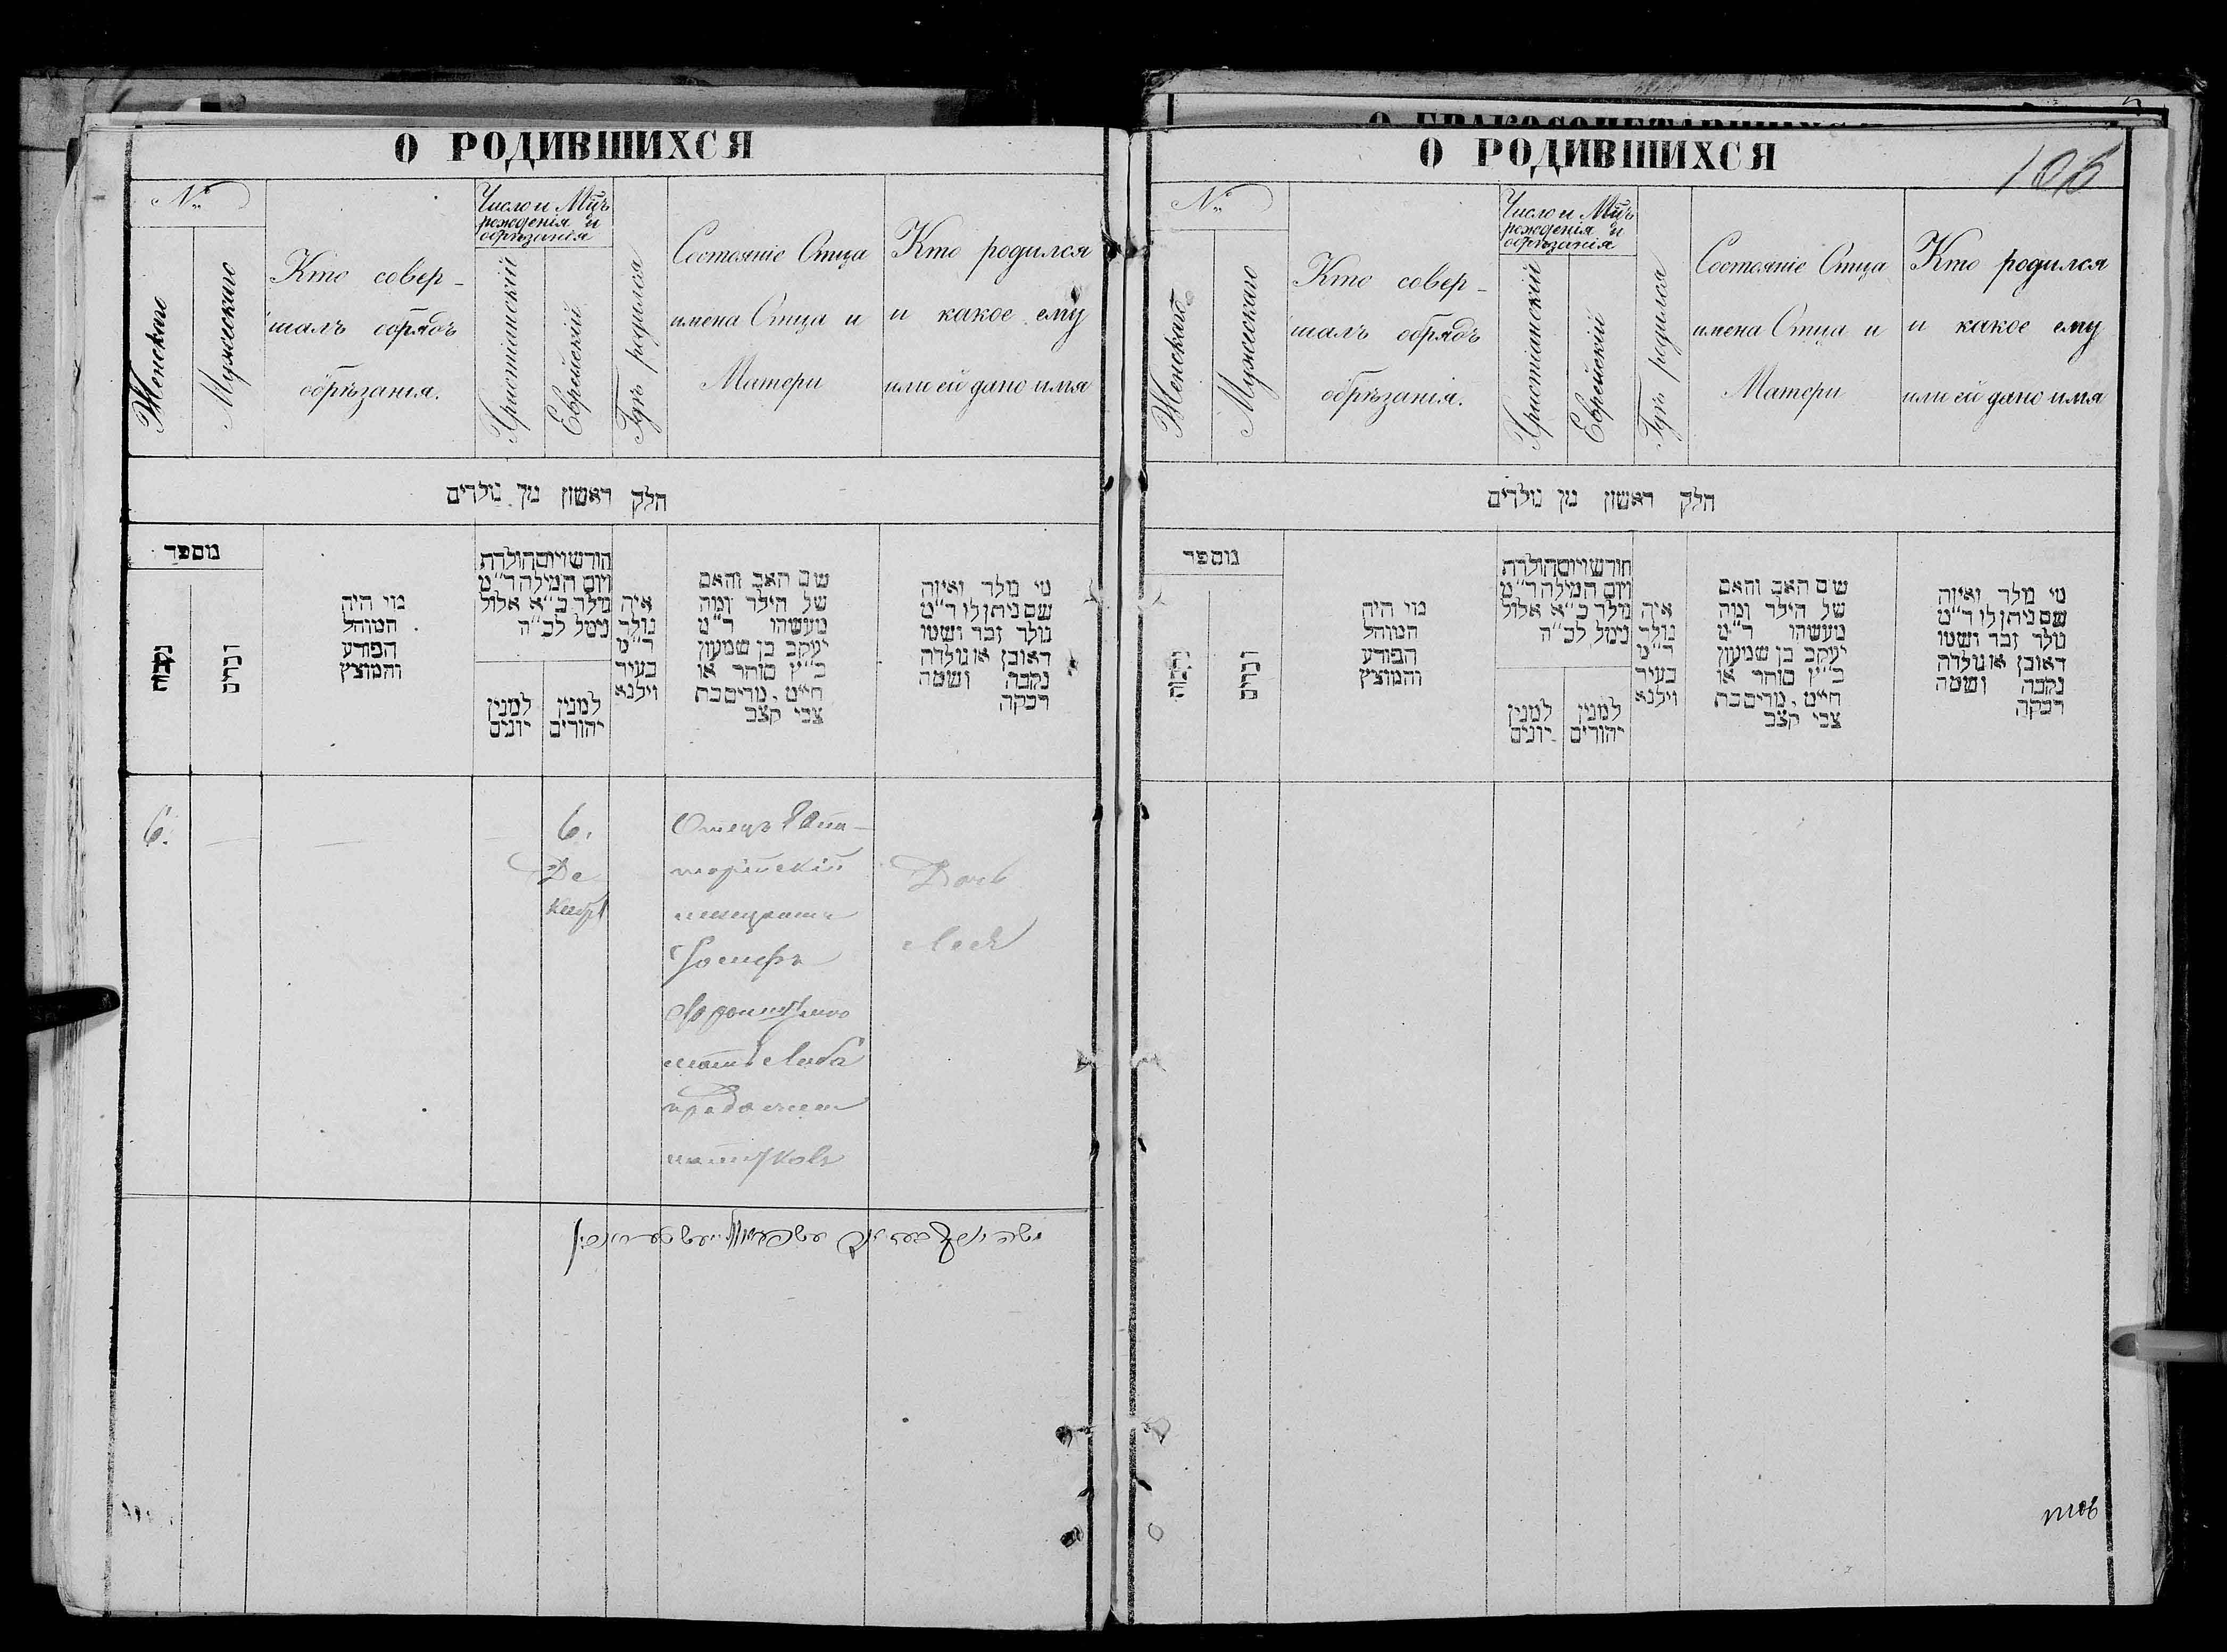 О РОДИВШИХСЯ
№
Женскаго
Мужескаго
Кто совер-
шалъ обрядъ
обрѣзанія.
Число и Мцъ
рожденія и
обрѣзанія
Христіанскій
Еврейскій
Гдѣ родился
Состояніе Отца
имена Отца и
Матери
Кто родился
и какое ему
или ей дано имя
חלק ראשון מן נולדים
מספר
נקבות
זכרים
מי היה
המוהל
הפורע
והמוצץ
חודש ויום הולדת
ויום המילה ד"מ
נולד כ"א אלול
נימל לכ"ה
למנין
יונים
למנין
יהודים
איה
נולד
ד"מ
בעיר
וילנא
שם האב והאם
של הילד ומה
מעשהו ד"מ
יעקב בן שמעון
כ"ץ סוחר או
חייט, מרים בת
צבי קצב
מי נולד ואיזה
שם ניתן לו ד"מ
נולד זכר ושמו
ראובן או נולדה
נקבה ושמה
רבקה
6.
6.
Де
кабр
Отецъ Евпа-
торійскій
мещанинъ
Іосифъ
мать
Дочь
О РОДИВШИХСЯ
106
№
Женскаго
Мужескаго
Кто совер-
шалъ обрядъ
обрѣзанія.
Число и Мцъ
рожденія и
обрѣзанія
Христіанскій
Еврейскій
Гдѣ родился
Состояніе Отца
имена Отца и
Матери
Кто родился
и какое ему
или ей дано имя
חלק ראשון מן נולדים
מספר
נקבות
זכרים
מי היה
המוהל
הפורע
והמוצץ
חודש ויום הולדת
ויום המילה ד"מ
נולד כ"א אלול
נימל לכ"ה
למנין
יונים
למנין
יהודים
איה
נולד
ד"מ
בעיר
וילנא
שם האב והאם
של הילד ומה
מעשהו ד"מ
יעקב בן שמעון
כ"ץ סוחר או
חייט, מרים בת
צבי קצב
מי נולד ואיזה
שם ניתן לו ד"מ
נולד זכר ושמו
ראובן או נולדה
נקבה ושמה
רבקה